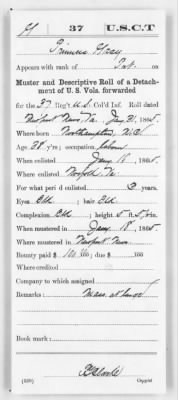 H | 37 | U.S.C.T
Primus Gray
Appears with rank of Pvt. on
Muster and Descriptive Roll of a Detach-
ment of U. S. Vols. forwarded
for the 37 Reg't U.S. Col'd Inf. Roll dated
Newport News, Va. Jany 21, 1865.
Where born Northampton, N.C.
Age 28 y'rs; occupation labor
When enlisted Jany 18, 1865.
Where enlisted Norfolk, Va.
For what period enlisted 3 years.
Eyes Blk; hair Blk
Complexion Blk; height 5 ft. in.
When mustered in Jany 18, 1865
Where mustered in Newport News
Bounty paid $ 100; due $ 100
Where credited
Company to which assigned
Remarks: Mass. at large
Book mark:
(339) Copyist